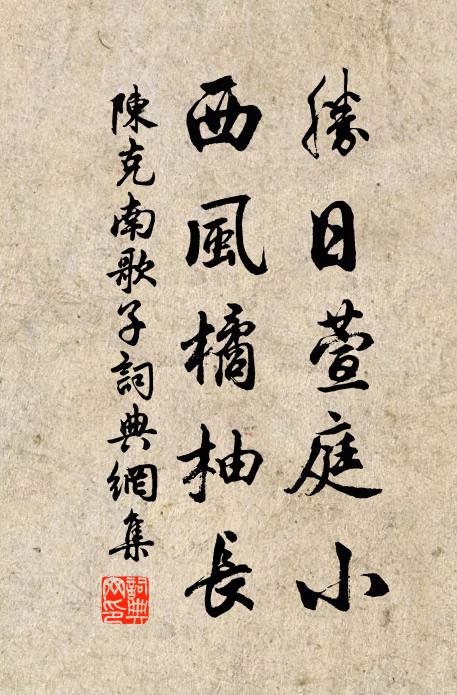 勝日萱庭小
西風橘柚長
陳克南歌子詞典網集
詞典網印